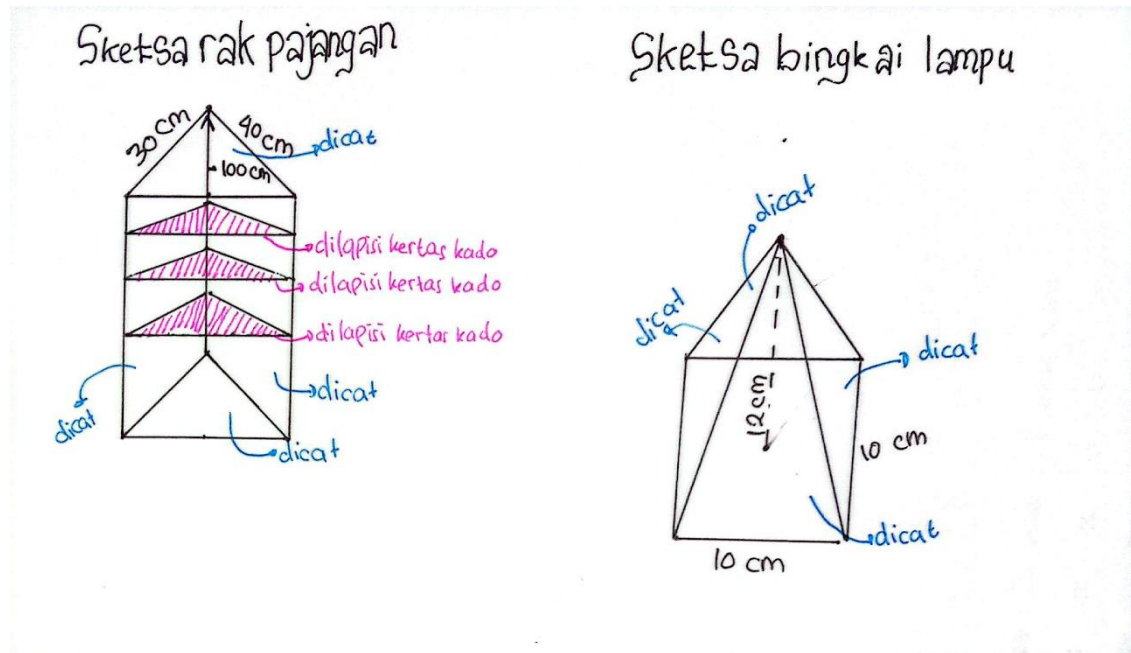 Sketsa rak pajangan
30 cm
40 cm
dicat
100 cm
dilapisi kertas kado
dilapisi kertas kado
dilapisi kertas kado
dicat
dicat
dicat
Sketsa bingkai lampu
dicat
dicat
dicat
12 cm
10 cm
dicat
10 cm